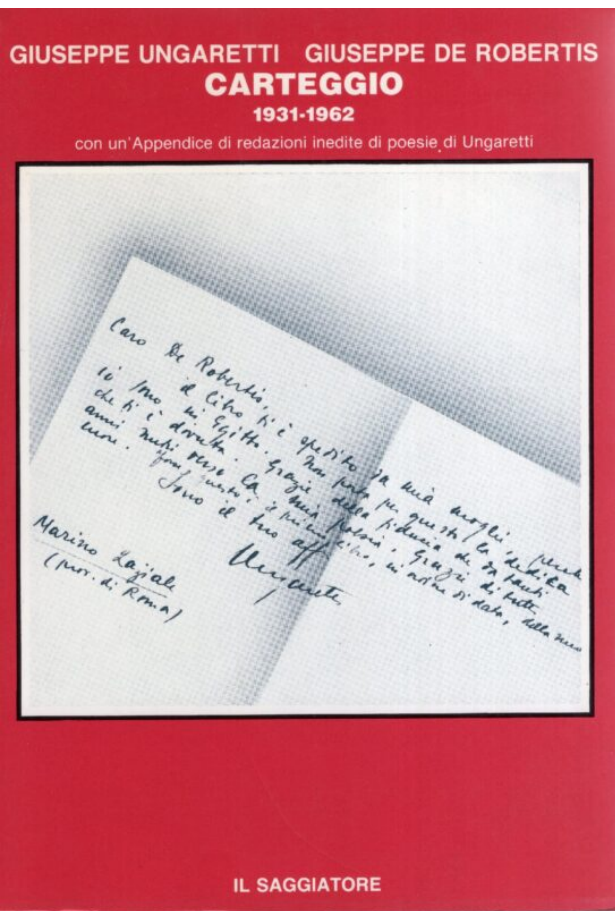 GIUSEPPE UNGARETTI GIUSEPPE DE ROBERTIS
CARTEGGIO
1931-1962
con un'Appendice di redazioni inedite di poesie di Ungaretti
Caro De Robertis,
il libro ti è spedito da mia moglie, perché
io sono in Egitto. Non porta per questo la dedica
che ti è dovuta. Grazie della fiducia che da tanti
anni nutri verso la mia poesia. Grazie di tutto
cuore. questo, il primo libro, in ordine di data, della mia
Sono il tuo aff.
Ungaretti
Marino Laziale
(prov. di Roma)
IL SAGGIATORE